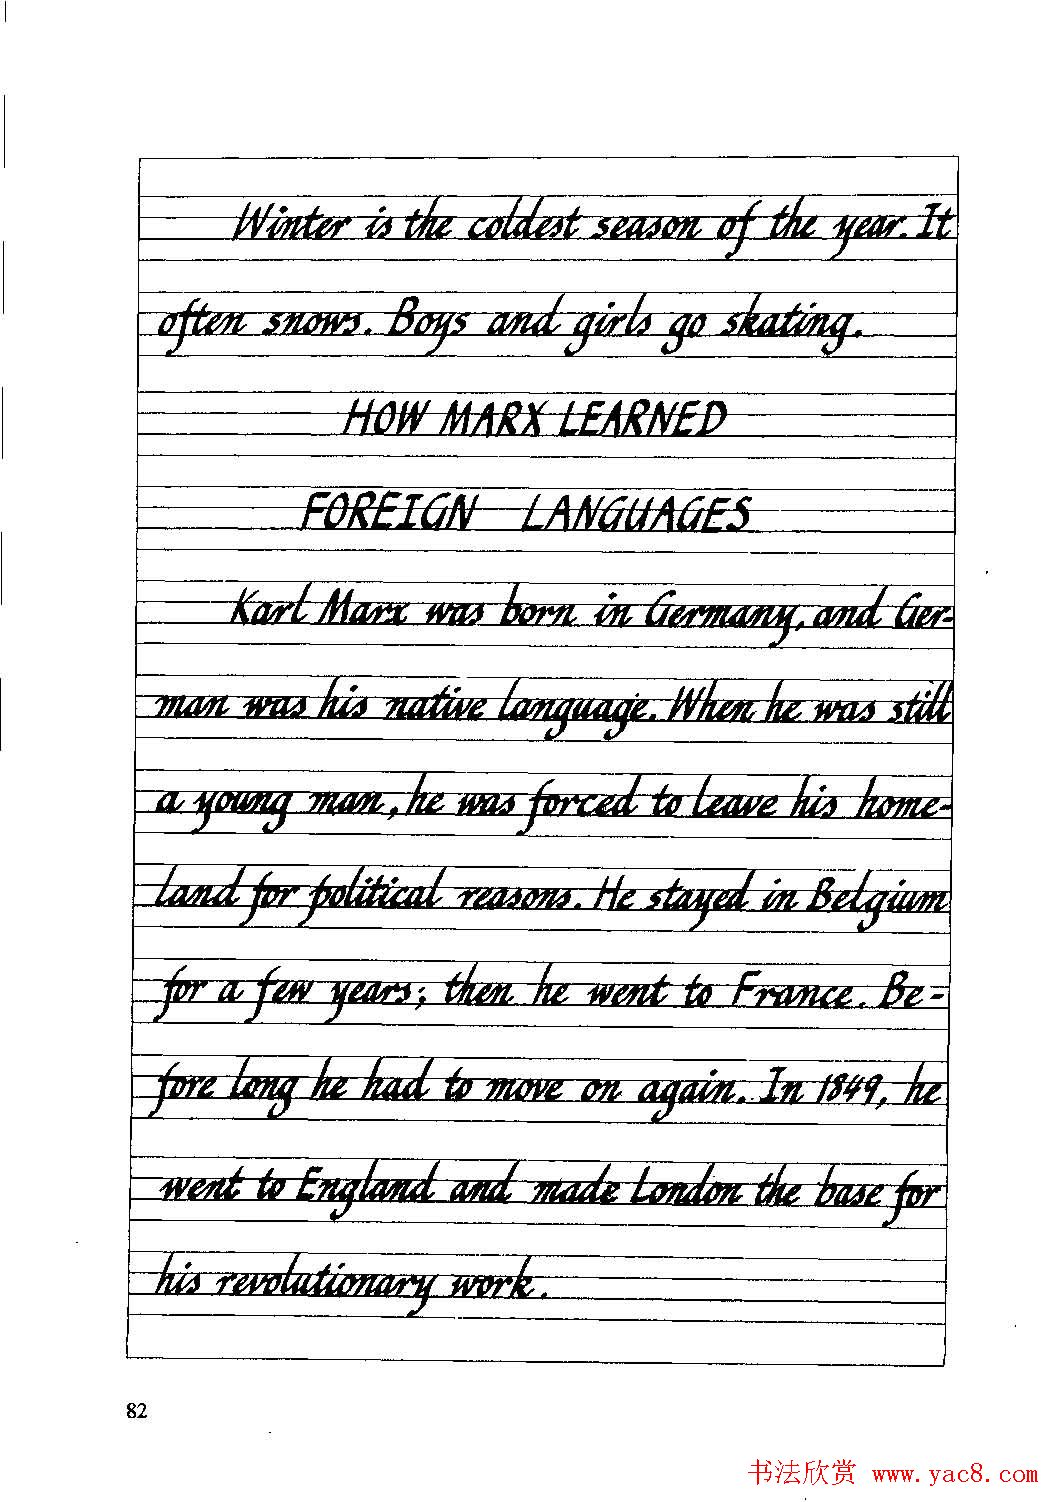 Winter is the coldest season of the year. It
often snows. Boys and girls go skating.
HOW MARX LEARNED
FOREIGN LANGUAGES
Karl Marx was born in Germany, and Ger-
man was his native language. When he was still
a young man, he was forced to leave his home-
land for political reasons. He stayed in Belgium
for a few years; then he went to France. Be-
fore long he had to move on again. In 1849, he
went to England and made London the base for
his revolutionary work.
82
书法欣赏 www.yac8.com